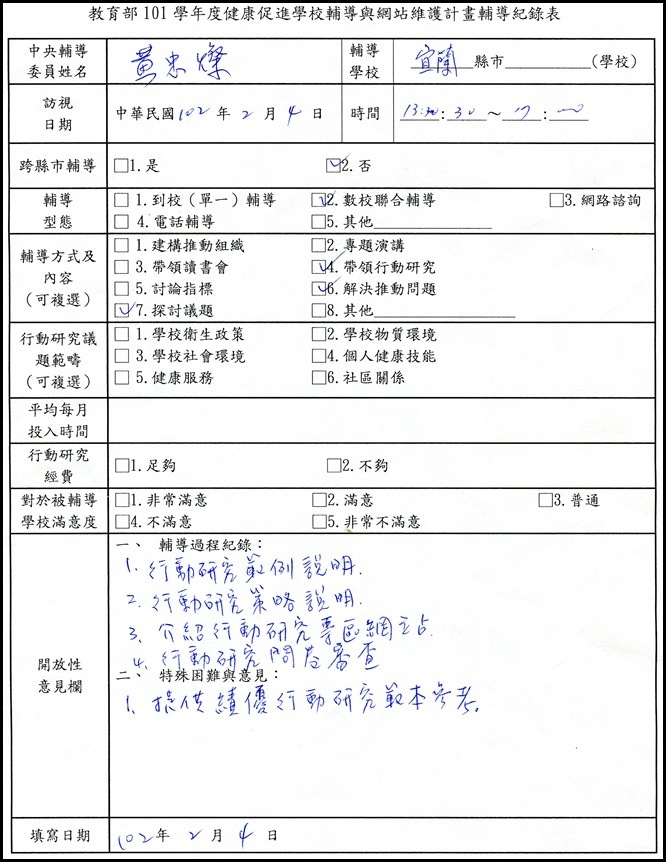 教育部 101 學年度健康促進學校輔導與網站維護計畫輔導紀錄表
中央輔導委員姓名 黃忠燦 輔導學校 宜蘭 縣市 (學校)
訪視日期 中華民國 102 年 2 月 4 日 時間
跨縣市輔導 □1.是 ☑2.否
輔導型態 □1.到校(單一)輔導 ☑2.數校聯合輔導 □3.網路諮詢
□4.電話輔導 □5.其他
輔導方式及內容(可複選) □1.建構推動組織 □2.專題演講
□3.帶領讀書會 ☑4.帶領行動研究
□5.討論指標 ☑6.解決推動問題
☑7.探討議題 □8.其他
行動研究議題範疇(可複選) □1.學校衛生政策 □2.學校物質環境
□3.學校社會環境 □4.個人健康技能
□5.健康服務 □6.社區關係
平均每月投入時間
行動研究經費 □1.足夠 □2.不夠
對於被輔導學校滿意度 □1.非常滿意 □2.滿意 □3.普通
□4.不滿意 □5.非常不滿意
開放性意見欄
一、 輔導過程紀錄:
1. 行動研究範例說明.
2. 行動研究策略說明.
3. 介紹行動研究專區網站.
4. 行動研究問卷審查
二、 特殊困難與意見:
1. 提供績優行動研究範本參考。
填寫日期 102 年 2 月 4 日